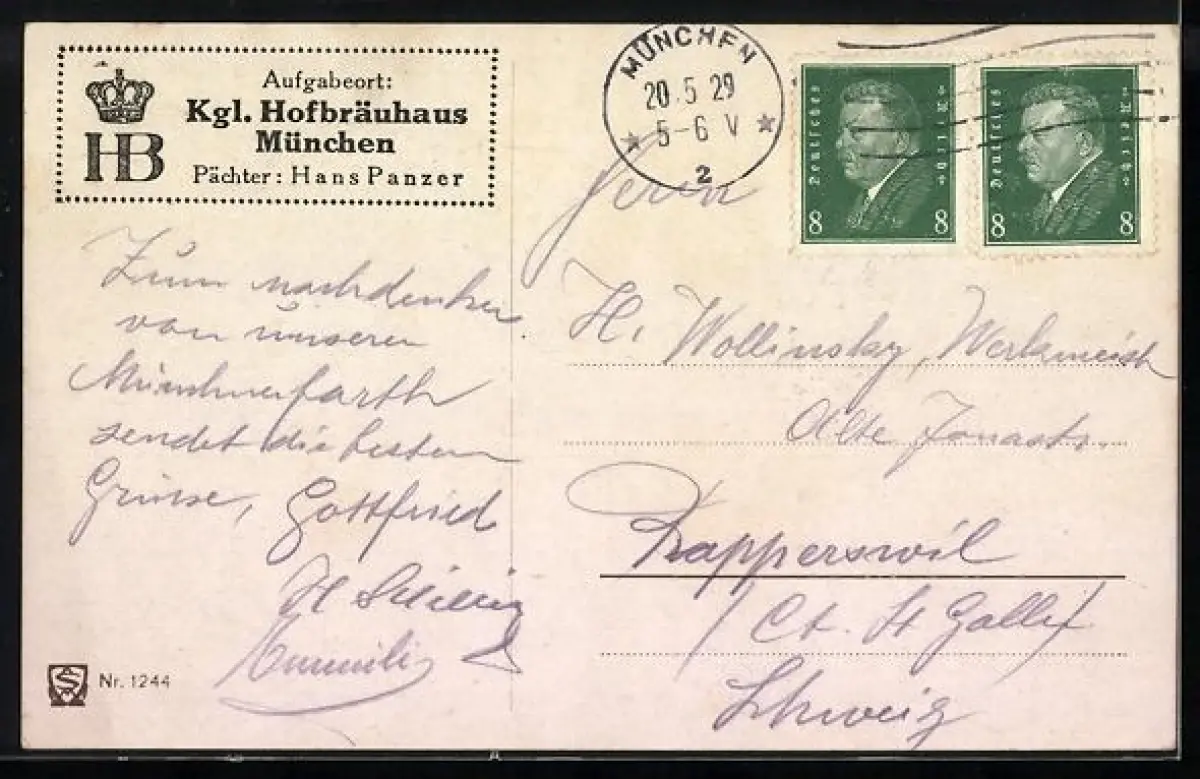 Aufgabeort:
Kgl. Hofbräuhaus
München
Pächter: Hans Panzer
HB
MÜNCHEN
20.5 29
5-6 V
2
Deutsches Reich
8 8
Deutsches Reich
8 8
Zum nachdenken
von unserer
Münchnerfarth
sendet die besten
Grüsse, Gottfried
H
Nr. 1244
Herrn
H. Wollinsky, Werkmeist
Alte Jonastr.
Rapperswil
(Ct. St Gallen)
Schweiz